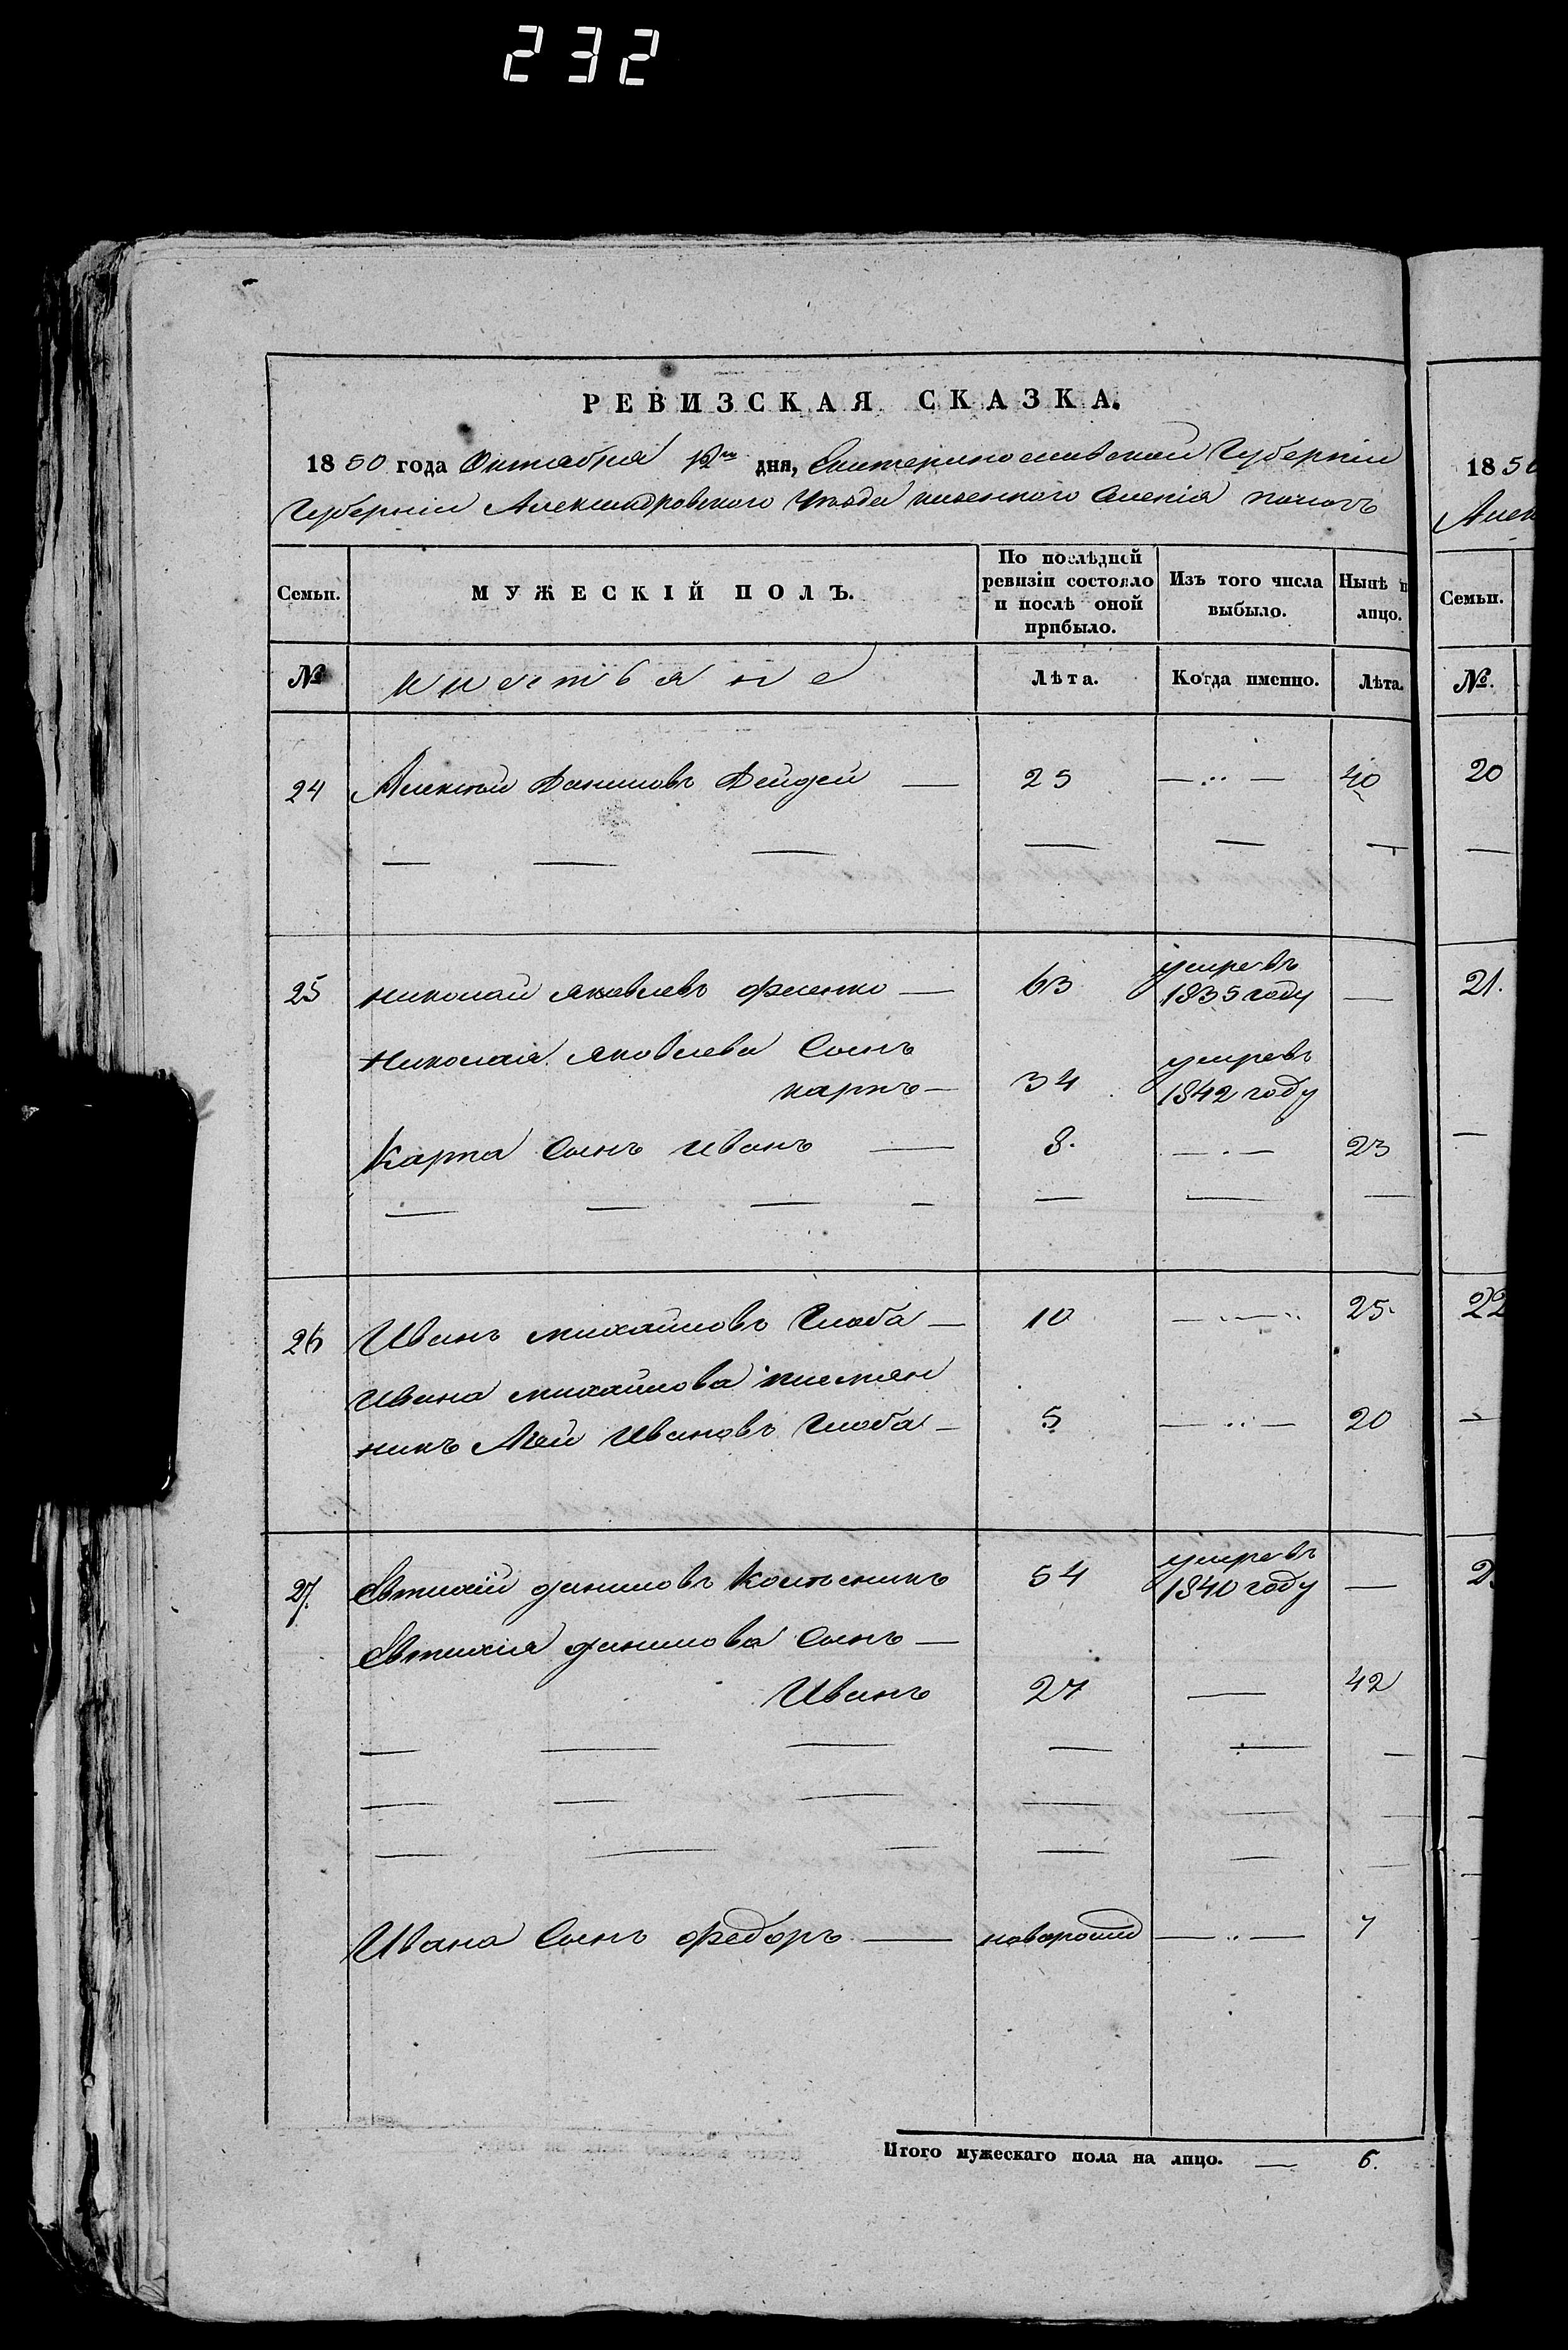 232
РЕВИЗСКАЯ СКАЗКА.
1850 года Октября 12го дня, Екатеринославской Губерніи
Губерніи Александровского Уѣзда казенного
Семьи.
МУЖЕСКІЙ ПОЛЪ.
По послѣдней ревизіи состояло и послѣ оной прибыло.
Изъ того числа выбыло.
Нынѣ н
лицо.
№
Лѣта.
Когда именно.
Лѣта.
24 Алексѣй Даниловъ 25 40
25 николай яковлевъ 63 умре въ 1835 году
николая яковлева Сынъ
карпъ 34 умре въ 1842 году
Карпа Сынъ иванъ 8. 23
26 Иванъ михайловъ Глоба 10 25
Ивана михайлова племян
никъ Ивановъ Глоба 5 20
27. Евтихій даниловъ Колѣсникъ 54 умре въ 1840 году
Евтихія данилова Сынъ
Иванъ 27 42
Ивана Сынъ федоръ 7
Итого мужескаго пола на лицо. 6.
1850
Алек
Семьи.
№.
20
21.
22
2